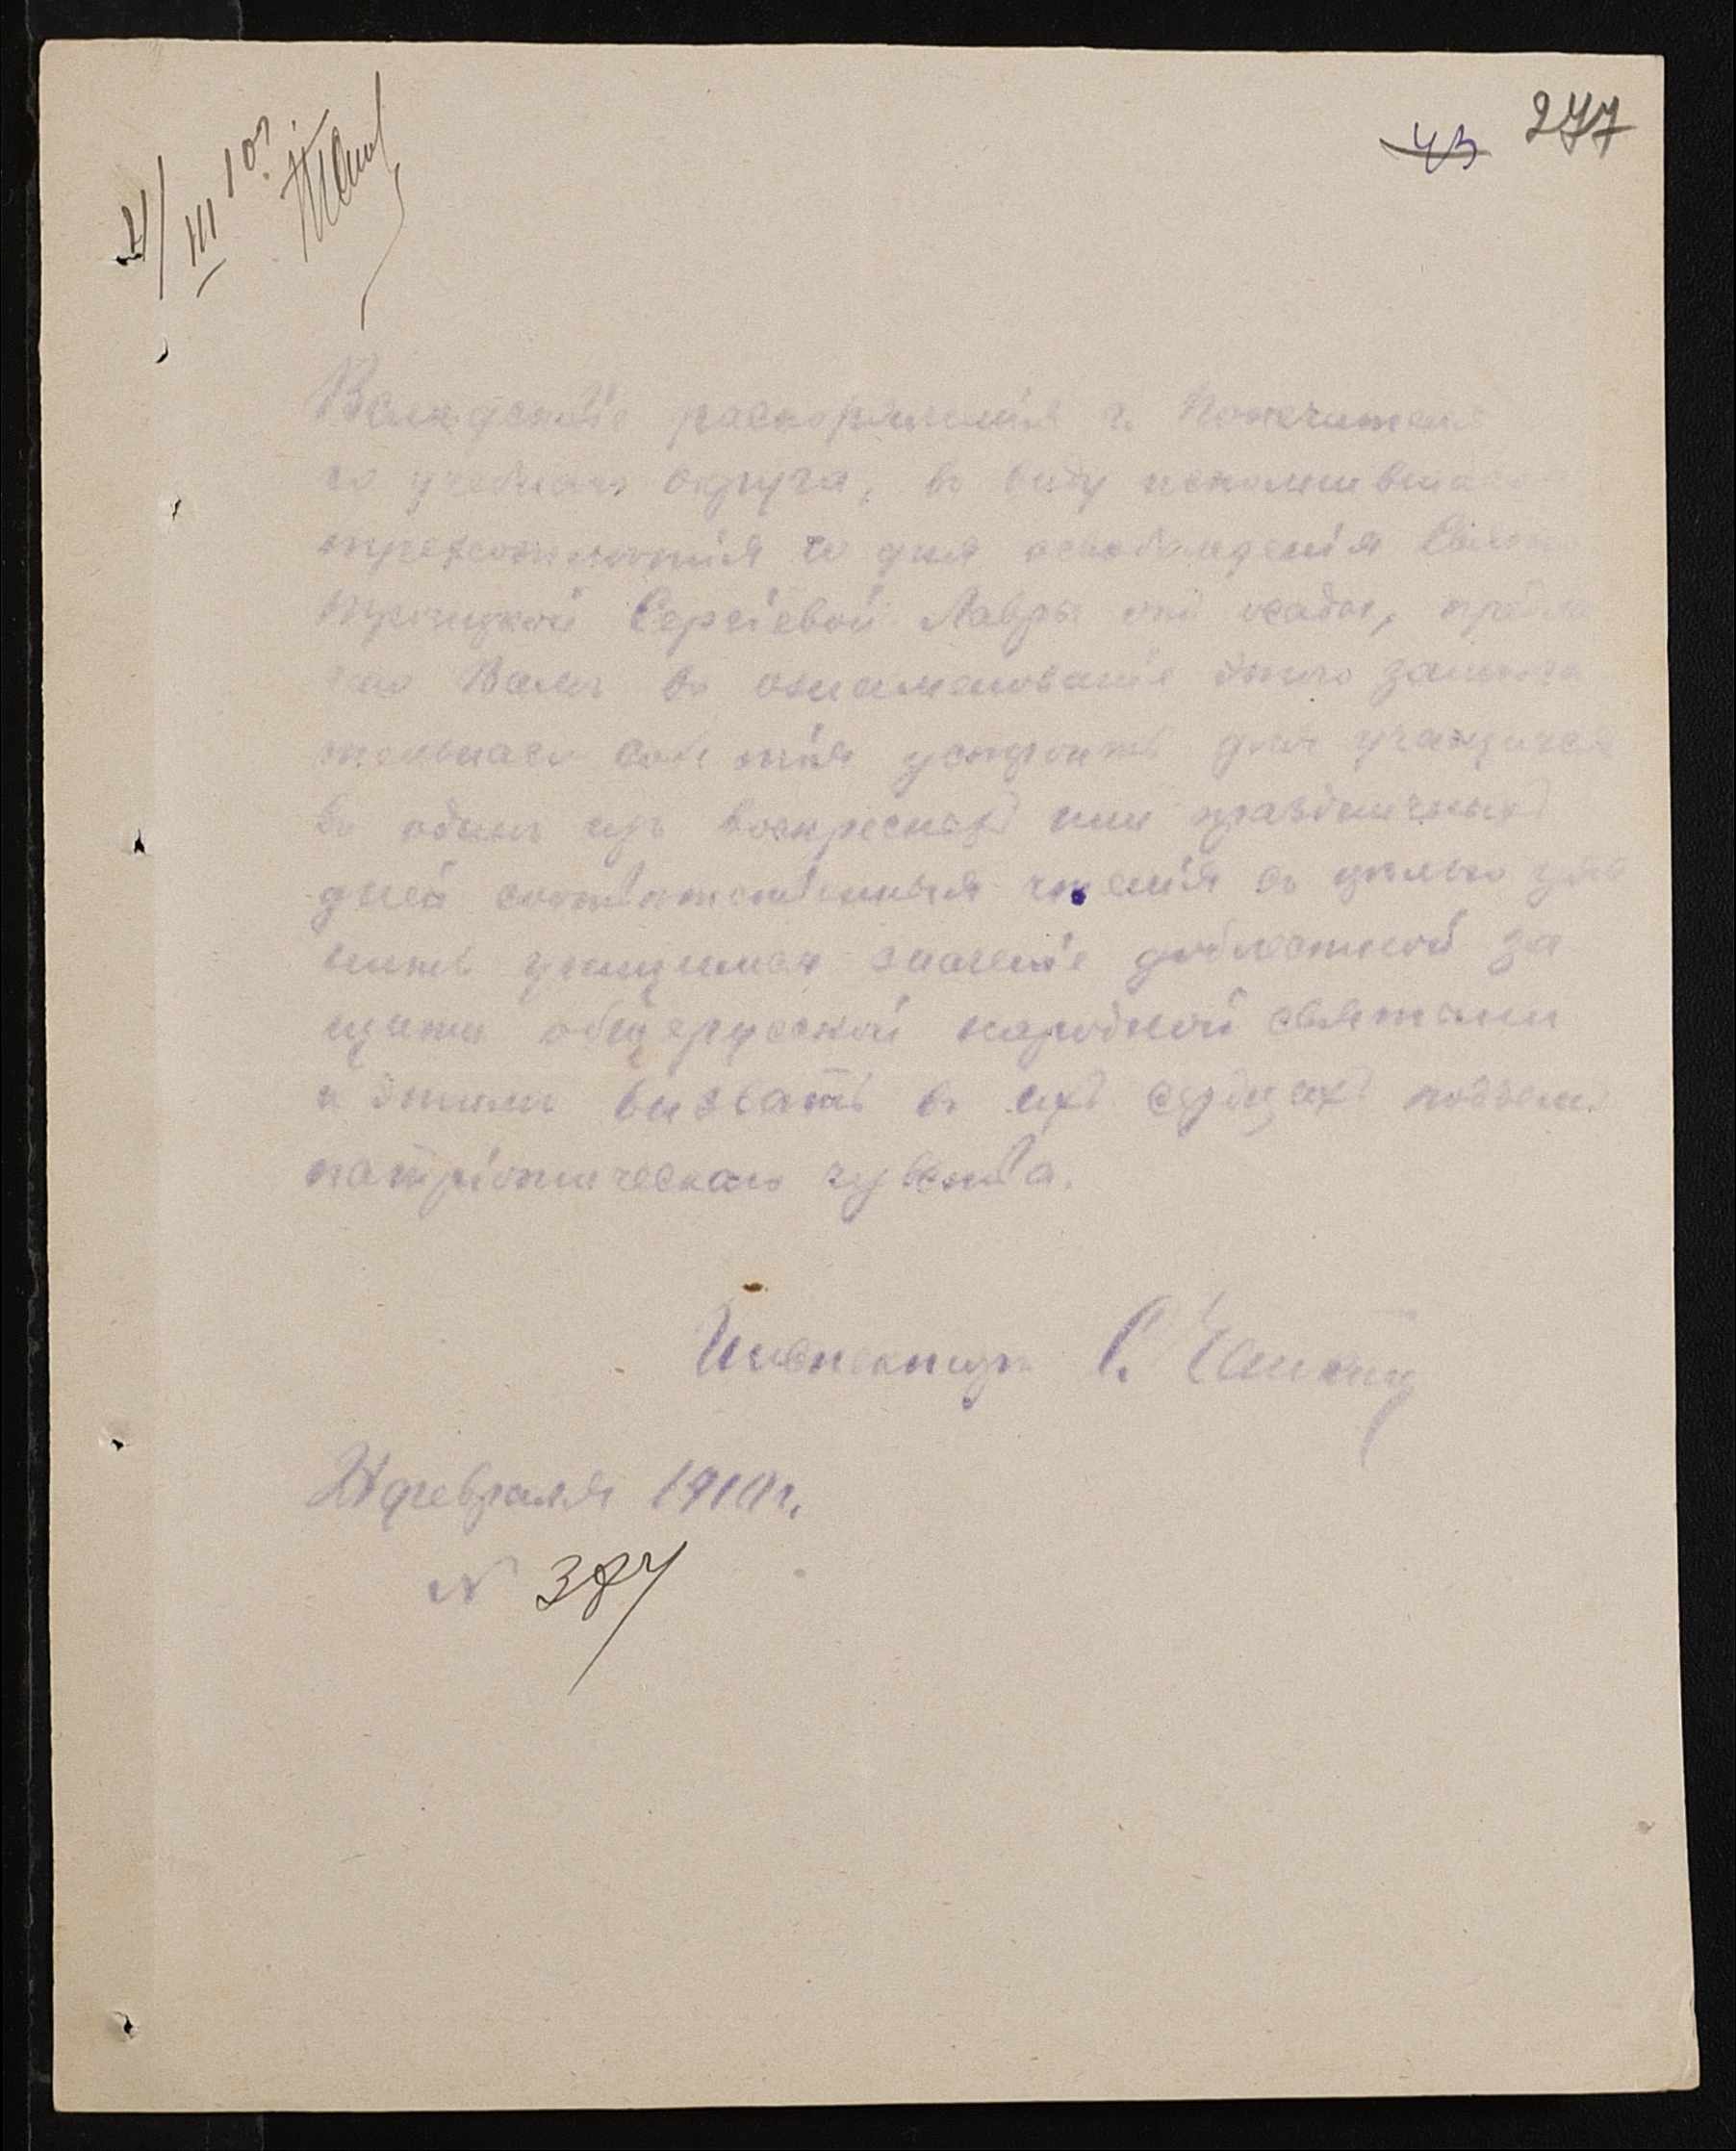 43 277
III 10 г.
Вслѣдствіе распоряженія г. Попечителя
го учебнаго округа, въ виду исполнившагося
трехсотлѣтія со дня освобожденія Свято
Троицкой Сергіевой Лавры отъ осады, предла
гаю Вамъ въ ознаменованіе этого замѣча
тельнаго событія устроить для учащихся
въ одинъ изъ воскресныхъ или праздничныхъ
дней соотвѣтственныя чтенія съ цѣлью уяс
нить учащимся значеніе доблестной за
щиты общерусской народной святыни
и этимъ вызвать въ ихъ сердцахъ подъемъ
патріотическаго чувства.
Инспекторъ С.
февраля 1910 г.
N 384